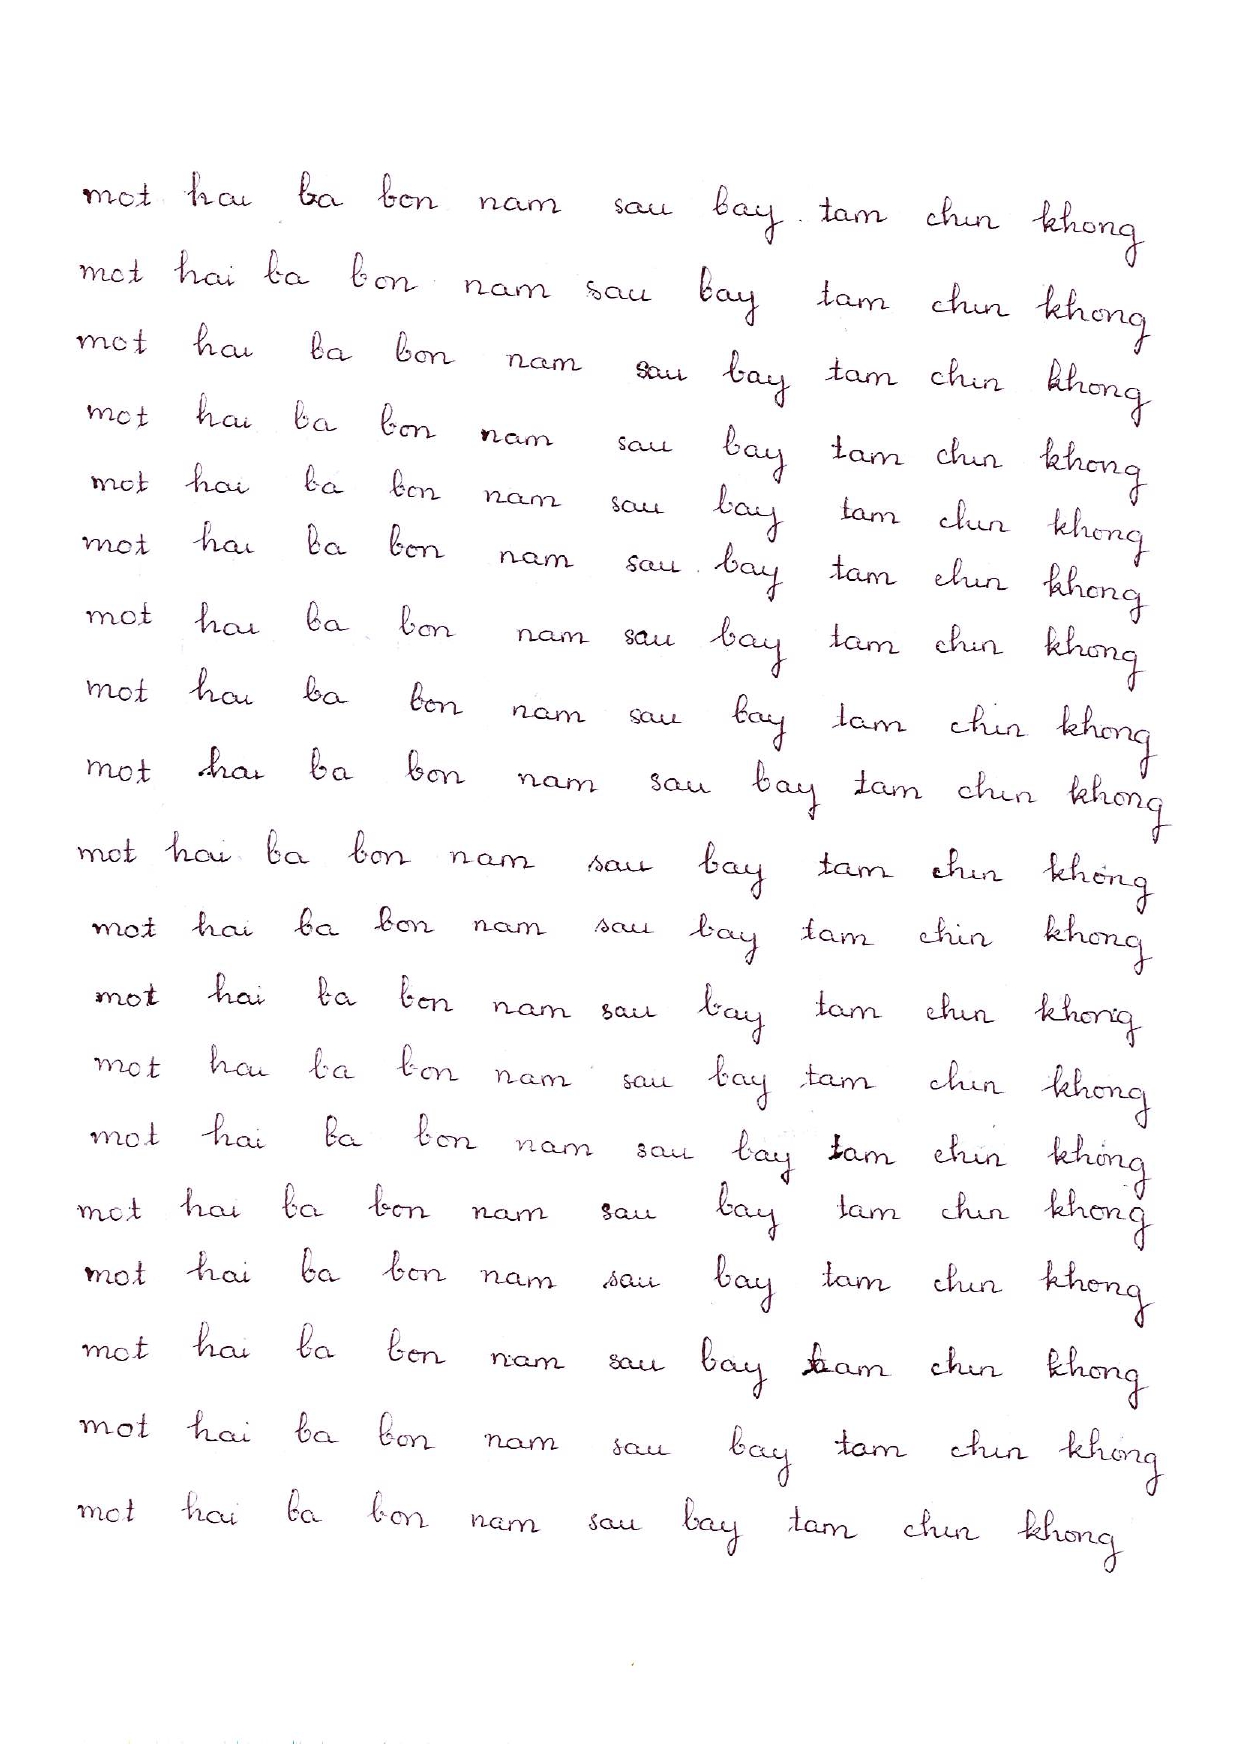 mot hai ba bon nam sau bay tam chin khong
mot hai ba bon nam sau bay tam chin khong
mot hai ba bon nam sau bay tam chin khong
mot hai ba bon nam sau bay tam chin khong
mot hai ba bon nam sau bay tam chin khong
mot hai ba bon nam sau bay tam chin khong
mot hai ba bon nam sau bay tam chin khong
mot hai ba bon nam sau bay tam chin khong
mot hai ba bon nam sau bay tam chin khong
mot hai ba bon nam sau bay tam chin khong
mot hai ba bon nam sau bay tam chin khong
mot hai ba bon nam sau bay tam chin khong
mot hai ba bon nam sau bay tam chin khong
mot hai ba bon nam sau bay tam chin khong
mot hai ba bon nam sau bay tam chin khong
mot hai ba bon nam sau bay tam chin khong
mot hai ba bon nam sau bay tam chin khong
mot hai ba bon nam sau bay tam chin khong
mot hai ba bon nam sau bay tam chin khong